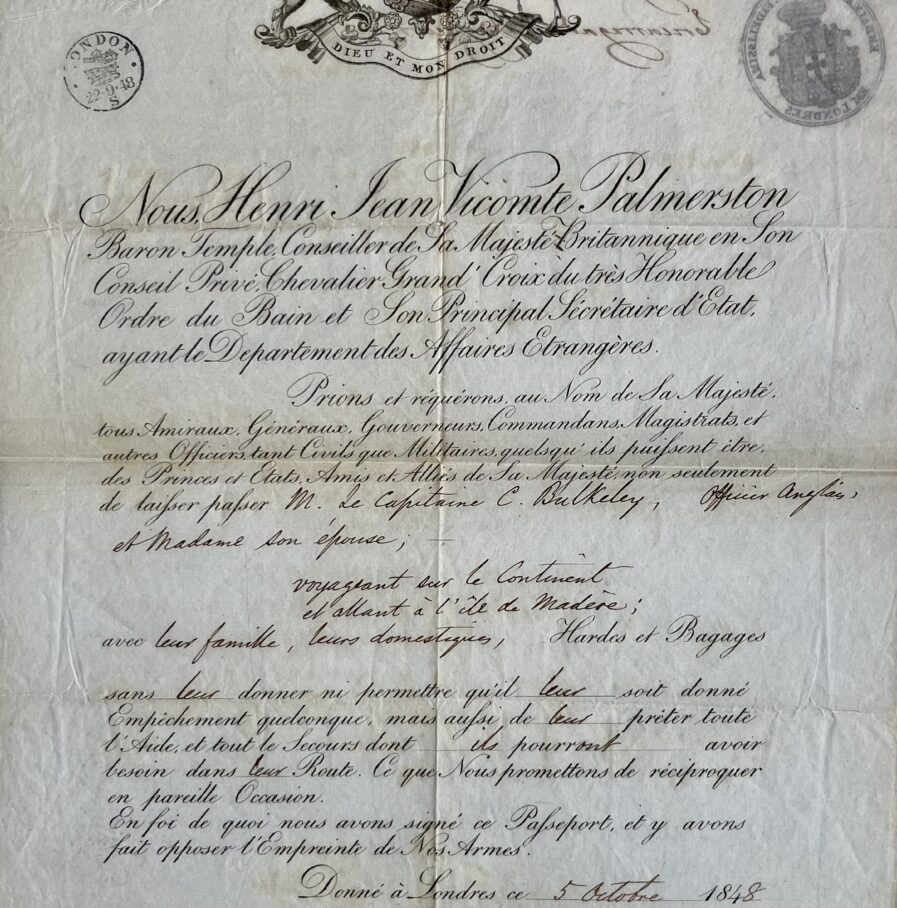 DIEU ET MON DROIT
LONDON
22·9·48
S
EN LONDRES
Nous, Henri Jean Vicomte Palmerston
Baron Temple, Conseiller de Sa Majesté Britannique en Son
Conseil Privé, Chevalier Grand' Croix du très Honorable
Ordre du Bain et Son Principal Sécrétaire d'Etat,
ayant le Departement des Affaires Etrangères.
Prions et réquérons, au Nom de Sa Majesté,
tous Amiraux, Généraux, Gouverneurs, Commandans, Magistrats, et
autres Officiers, tant Civils que Militaires, quelsqu'ils puissent être,
des Princes et Etats, Amis et Alliés de Sa Majesté, non seulement
de laisser passer M. Le Capitaine C. Bulkeley, Officier Anglais,
et Madame son épouse; —
voyageant sur le Continent
et allant à l'île de Madère;
avec leur famille, leurs domestiques, Hardes et Bagages
sans leur donner ni permettre qu'il leur soit donné
Empêchement quelconque, mais aussi de leur prêter toute
l'Aide, et tout le Secours dont ils pourront avoir
besoin dans leur Route. Ce que Nous promettons de réciproquer
en pareille Occasion.
En foi de quoi nous avons signé ce Passeport, et y avons
fait opposer l'Empreinte de Nos Armes.
Donné à Londres ce 5 Octobre 1848